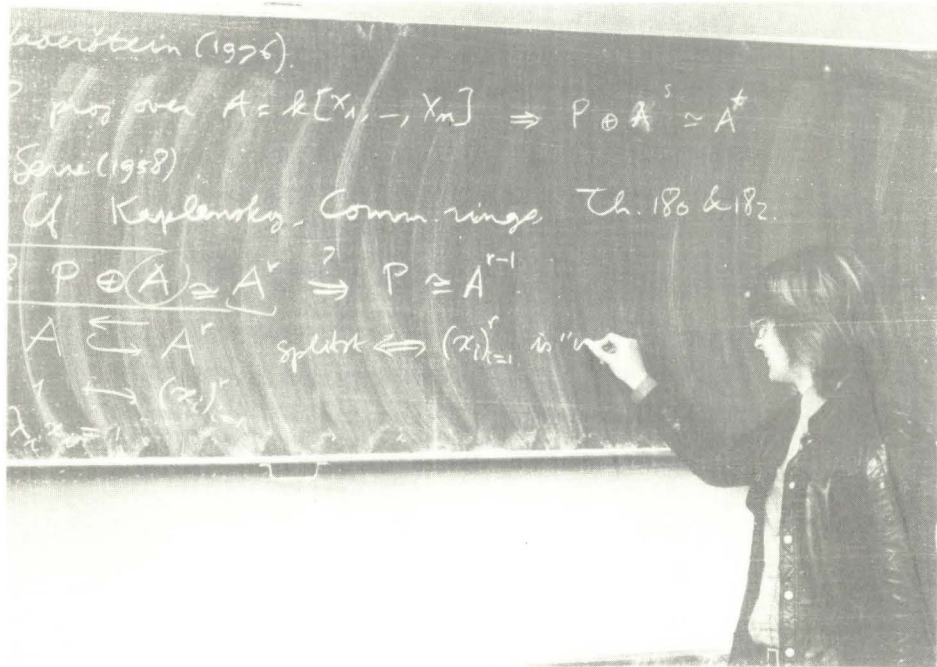 (1976).
proj over A = k[X₁, –, Xₙ] ⇒ P ⊕ A^s ≃ A^t
Serre (1958)
Cf Kaplansky, Comm. rings, Th. 180 & 182.
? P ⊕ A ≃ A^r ⇒? P ≃ A^{r-1}
A ⇆ A^r split ⇔ (x_i)_{i=1}^r is "
1 ↦ (x_i)^r